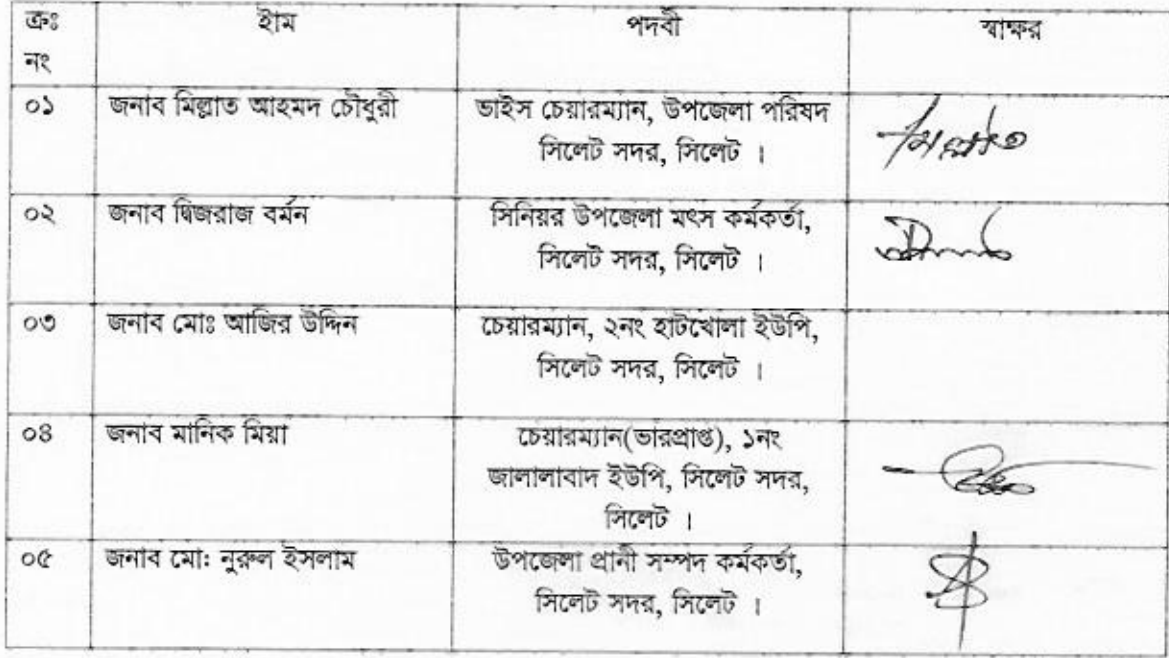 ক্রঃ নং ইাম পদবী স্বাক্ষর
০১ জনাব মিল্লাত আহমদ চৌধুরী ভাইস চেয়ারম্যান, উপজেলা পরিষদ
সিলেট সদর, সিলেট ।
০২ জনাব দ্বিজরাজ বর্মন সিনিয়র উপজেলা মৎস কর্মকর্তা,
সিলেট সদর, সিলেট ।
০৩ জনাব মোঃ আজির উদ্দিন চেয়ারম্যান, ২নং হাটখোলা ইউপি,
সিলেট সদর, সিলেট ।
০৪ জনাব মানিক মিয়া চেয়ারম্যান(ভারপ্রাপ্ত), ১নং
জালালাবাদ ইউপি, সিলেট সদর,
সিলেট ।
০৫ জনাব মো: নুরুল ইসলাম উপজেলা প্রানী সম্পদ কর্মকর্তা,
সিলেট সদর, সিলেট ।